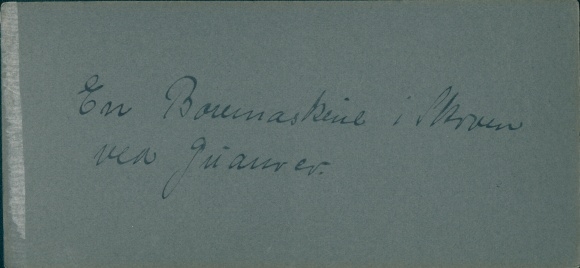 En Boremaskine i Skoven
ved